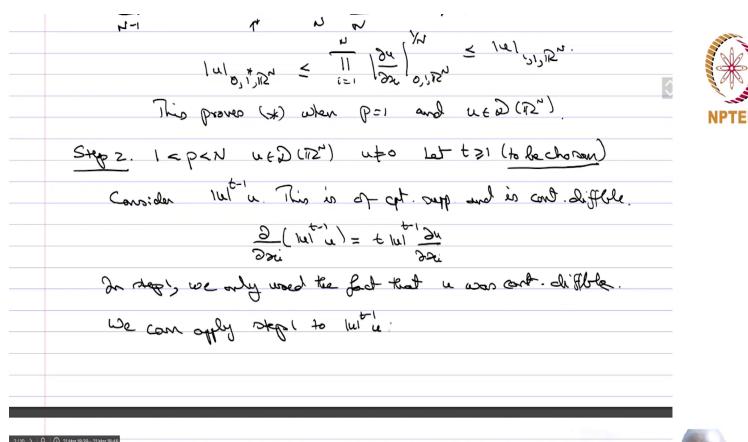 N-1 1* N N
|u|_{0,1*,ℝ^N} ≤ ∏_{i=1}^{N} |∂u/∂x_i|_{0,1,ℝ^N}^{1/N} ≤ |u|_{1,1,ℝ^N}.
This proves (*) when p=1 and u∈𝒟(ℝ^N).
Step 2. 1<p<N u∈𝒟(ℝ^N) u≠0 Let t≥1 (to be chosen)
Consider |u|^{t-1}u. This is of cpt. supp and is cont. diffble.
∂/∂x_i (|u|^{t-1}u) = t|u|^{t-1} ∂u/∂x_i
In step 1, we only used the fact that u was cont. diffble.
We can apply step 1 to |u|^{t-1}u.
NPTE